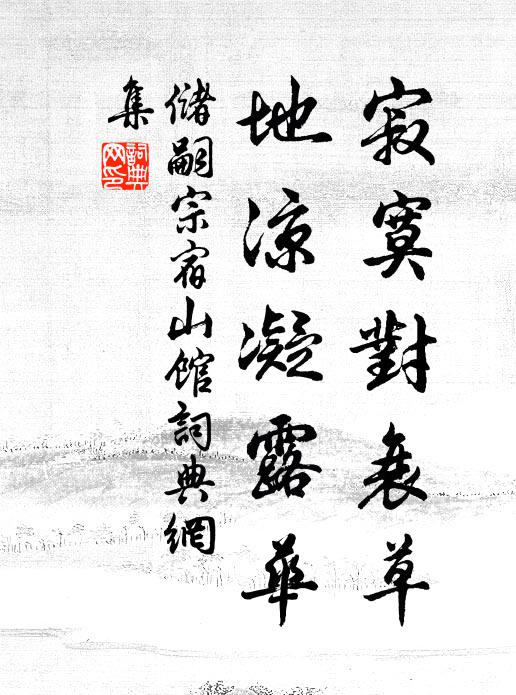 寂寞對衰草
地涼凝露華
儲嗣宗宿山館詞典網
集
詞典
网印